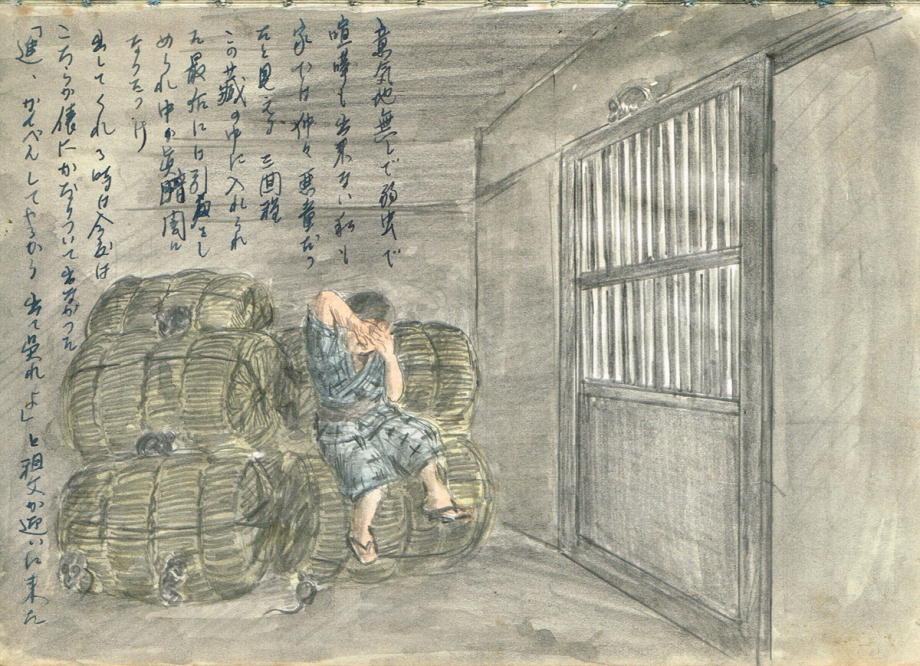 意気地無しで弱虫で
喧嘩も出来ない私も
家では仲々悪童だっ
たと見える 三回程
この藏の中に入れられ
た最后には引戸をし
められ中が真暗闇に
なりたっけ
出してくれる時は今度は
こちらが俵にかぢりついて出なかった
「進、かんべんしてやるから 出て呉れよ」と祖父が迎いに来た